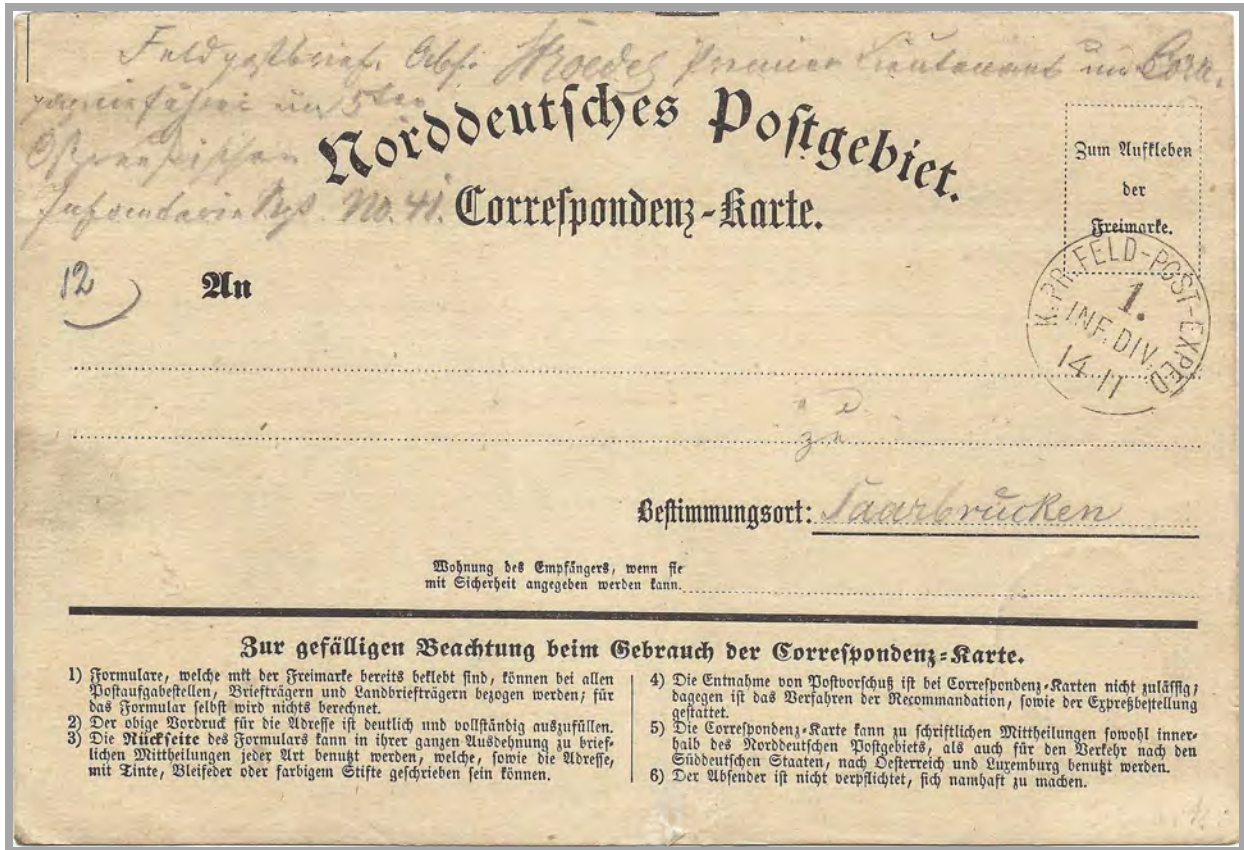 Feldpostbrief. Abs: Premier Lieutenant und Com-
pagnieführer im 5ten
Ostpreußischen
Infanterie Rgt. No. 41.
Norddeutſches Poſtgebiet.
Correſpondenz-Karte.
Zum Aufkleben
der
Freimarke.
K. PR. FELD-POST-EXPED
1.
INF. DIV.
14 11
12
An
zu
Beſtimmungsort: Saarbrücken
Wohnung des Empfängers, wenn ſie
mit Sicherheit angegeben werden kann.
Zur gefälligen Beachtung beim Gebrauch der Correſpondenz-Karte.
1) Formulare, welche mit der Freimarke bereits beklebt ſind, können bei allen
Poſtaufgabeſtellen, Briefträgern und Landbriefträgern bezogen werden; für
das Formular ſelbſt wird nichts berechnet.
2) Der obige Vordruck für die Adreſſe iſt deutlich und vollſtändig auszufüllen.
3) Die Rückſeite des Formulars kann in ihrer ganzen Ausdehnung zu brief-
lichen Mittheilungen jeder Art benutzt werden, welche, ſowie die Adreſſe,
mit Tinte, Bleifeder oder farbigem Stifte geſchrieben ſein können.
4) Die Entnahme von Poſtvorſchuß iſt bei Correſpondenz-Karten nicht zuläſſig;
dagegen iſt das Verfahren der Recommandation, ſowie der Expreßbeſtellung
geſtattet.
5) Die Correſpondenz-Karte kann zu ſchriftlichen Mittheilungen ſowohl inner-
halb des Norddeutſchen Poſtgebiets, als auch für den Verkehr nach den
Süddeutſchen Staaten, nach Oeſterreich und Luxemburg benutzt werden.
6) Der Abſender iſt nicht verpflichtet, ſich namhaft zu machen.